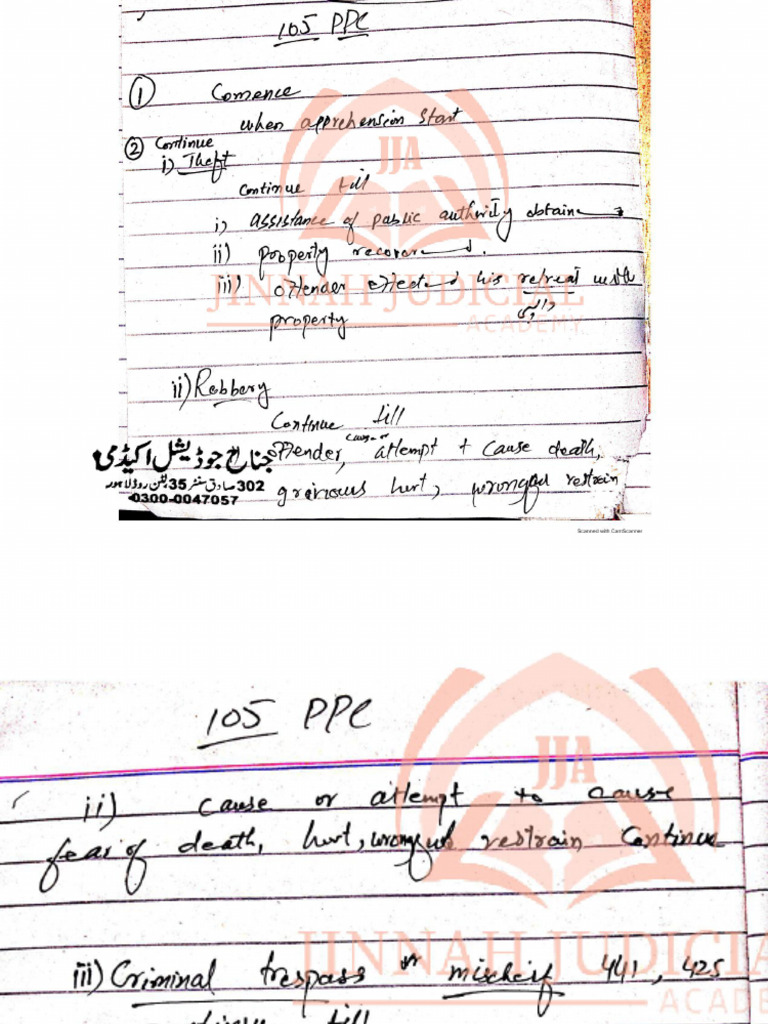 105 PPC
① Comence
when apprehension start
② Continue
i) Theft
Continue till
i) assistance of public authority obtaine
ii) property recovered.
iii) offender effected his retreat with
property
JJA
JINNAH JUDICIAL
ACADEMY
ii) Robbery
Continue till
offender, cause or attempt to cause death,
grievious hurt, wrongful restrain
جناح جوڈیشل اکیڈمی
302 صادق سنٹر 35 لٹن روڈ لاہور
0300-0047057
Scanned with CamScanner
105 PPC
JJA
ii) cause or attempt to cause
fear of death, hurt, wrongful restrain Continue
JINNAH JUDICIAL
ACADE
iii) Criminal trespass or mischeif 441, 425
till